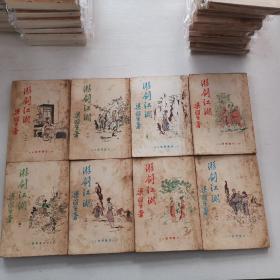 游剑江湖
梁羽生著
游剑江湖
梁羽生著
游剑江湖
梁羽生著
游剑江湖
梁羽生著
游剑江湖
梁羽生著
游剑江湖
梁羽生著
游剑江湖
梁羽生著
游剑江湖
梁羽生著